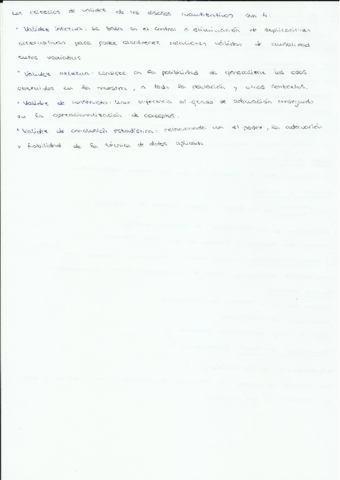 Los criterios de validez de los diseños cuantitativos son 4:
* Validez interna: Se basa en el control o eliminación de explicaciones
alternativas para poder establecer relaciones válidas de causalidad
entre variables.
* Validez externa: consiste en la posibilidad de generalizar los datos
obtenidos en la muestra, a toda la población y otros contextos.
* Validez de constructo: hace referencia al grado de adecuación conseguido
en la operacionalización de conceptos.
* Validez de conclusión estadística: relacionada con el poder, la adecuación
y fiabilidad de la técnica de datos aplicada